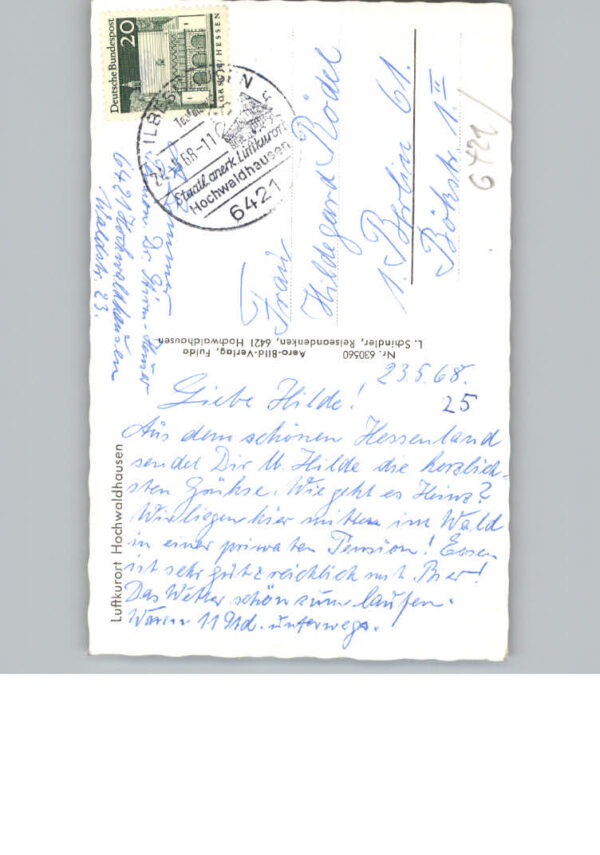 Deutsche Bundespost
20
LORSCH/HESSEN
ILBESHAUSEN
68-11
Staatl. anerk. Luftkurort
Hochwaldhausen
6421
6421
6421 Hochwaldhausen
Waldstr. 23.
Frau
Hildegard Rödel
1. Berlin 61.
Böckstr. 1 II
Nr. 630560 Aero-Bild-Verlag, Fulda
L. Schindler, Reiseandenken, 6421 Hochwaldhausen
Luftkurort Hochwaldhausen
23.5.68.
25
Liebe Hilde!
Aus dem schönen Hessenland
sendet Dir u. Hilde die herzlich-
sten Grüße. Wie geht es Heinz?
Wir liegen hier mitten im Wald
in einer privaten Pension! Essen
ist sehr gut & reichlich mit Bier!
Das Wetter schön zum laufen.
Waren 11 Std. unterwegs.